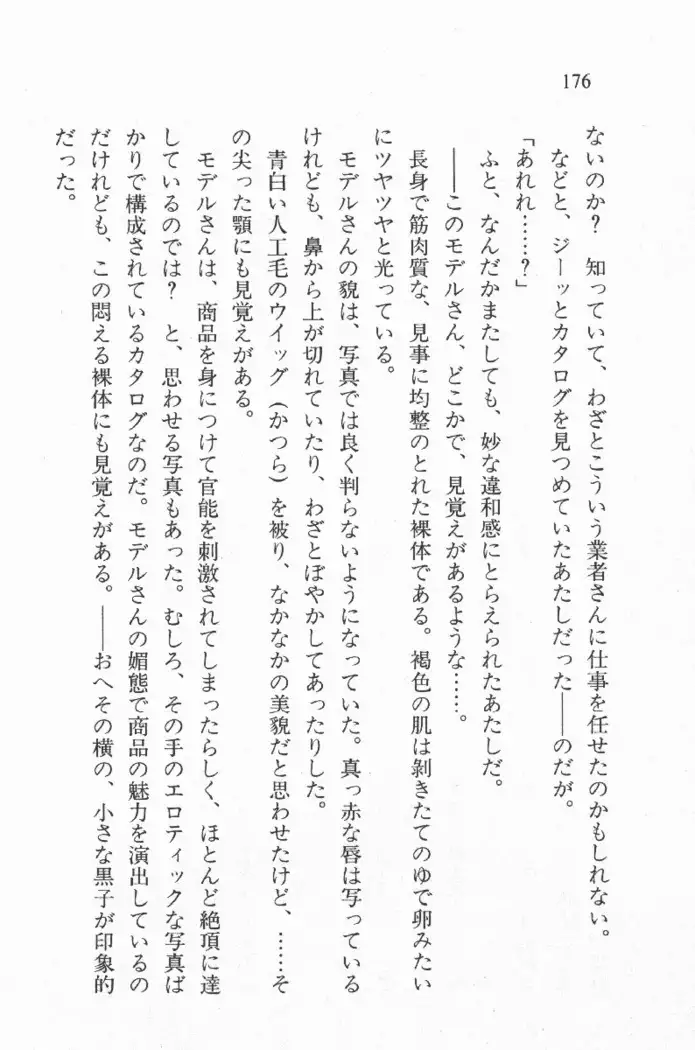 176
ないのか？　知っていて、わざとこういう業者さんに仕事を任せたのかもしれない。
などと、ジーッとカタログを見つめていたあたしだった――のだが。
「あれれ……？」
ふと、なんだかまたしても、妙な違和感にとらえられたあたしだ。
――このモデルさん、どこかで、見覚えがあるような……。
長身で筋肉質な、見事に均整のとれた裸体である。褐色の肌は剝きたてのゆで卵みたい
にツヤツヤと光っている。
モデルさんの貌は、写真では良く判らないようになっていた。真っ赤な唇は写っている
けれども、鼻から上が切れていたり、わざとぼやかしてあったりした。
青白い人工毛のウイッグ（かつら）を被り、なかなかの美貌だと思わせたけど、……そ
の尖った顎にも見覚えがある。
モデルさんは、商品を身につけて官能を刺激されてしまったらしく、ほとんど絶頂に達
しているのでは？　と、思わせる写真もあった。むしろ、その手のエロティックな写真ば
かりで構成されているカタログなのだ。モデルさんの媚態で商品の魅力を演出しているの
だけれども、この悶える裸体にも見覚えがある。――おへその横の、小さな黒子が印象的
だった。